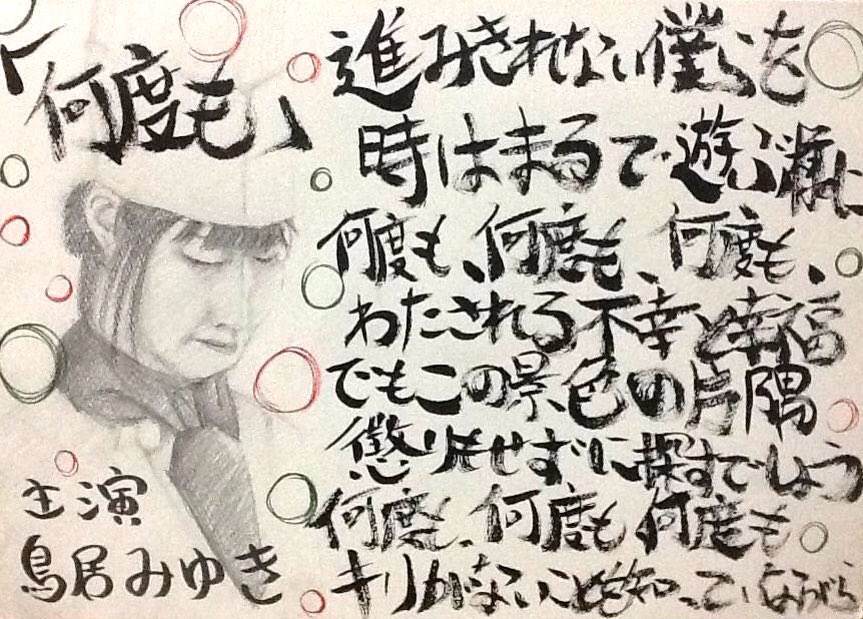 何度も、
進みきれない僕らを
時はまるで遊ぶ様に
何度も、何度も、何度も、
わたされる不幸と幸福
でもこの景色の片隅
懲りもせずに探すでしょう
何度も、何度も 何度も
キリがないことも知っていながら
主演
鳥居みゆき